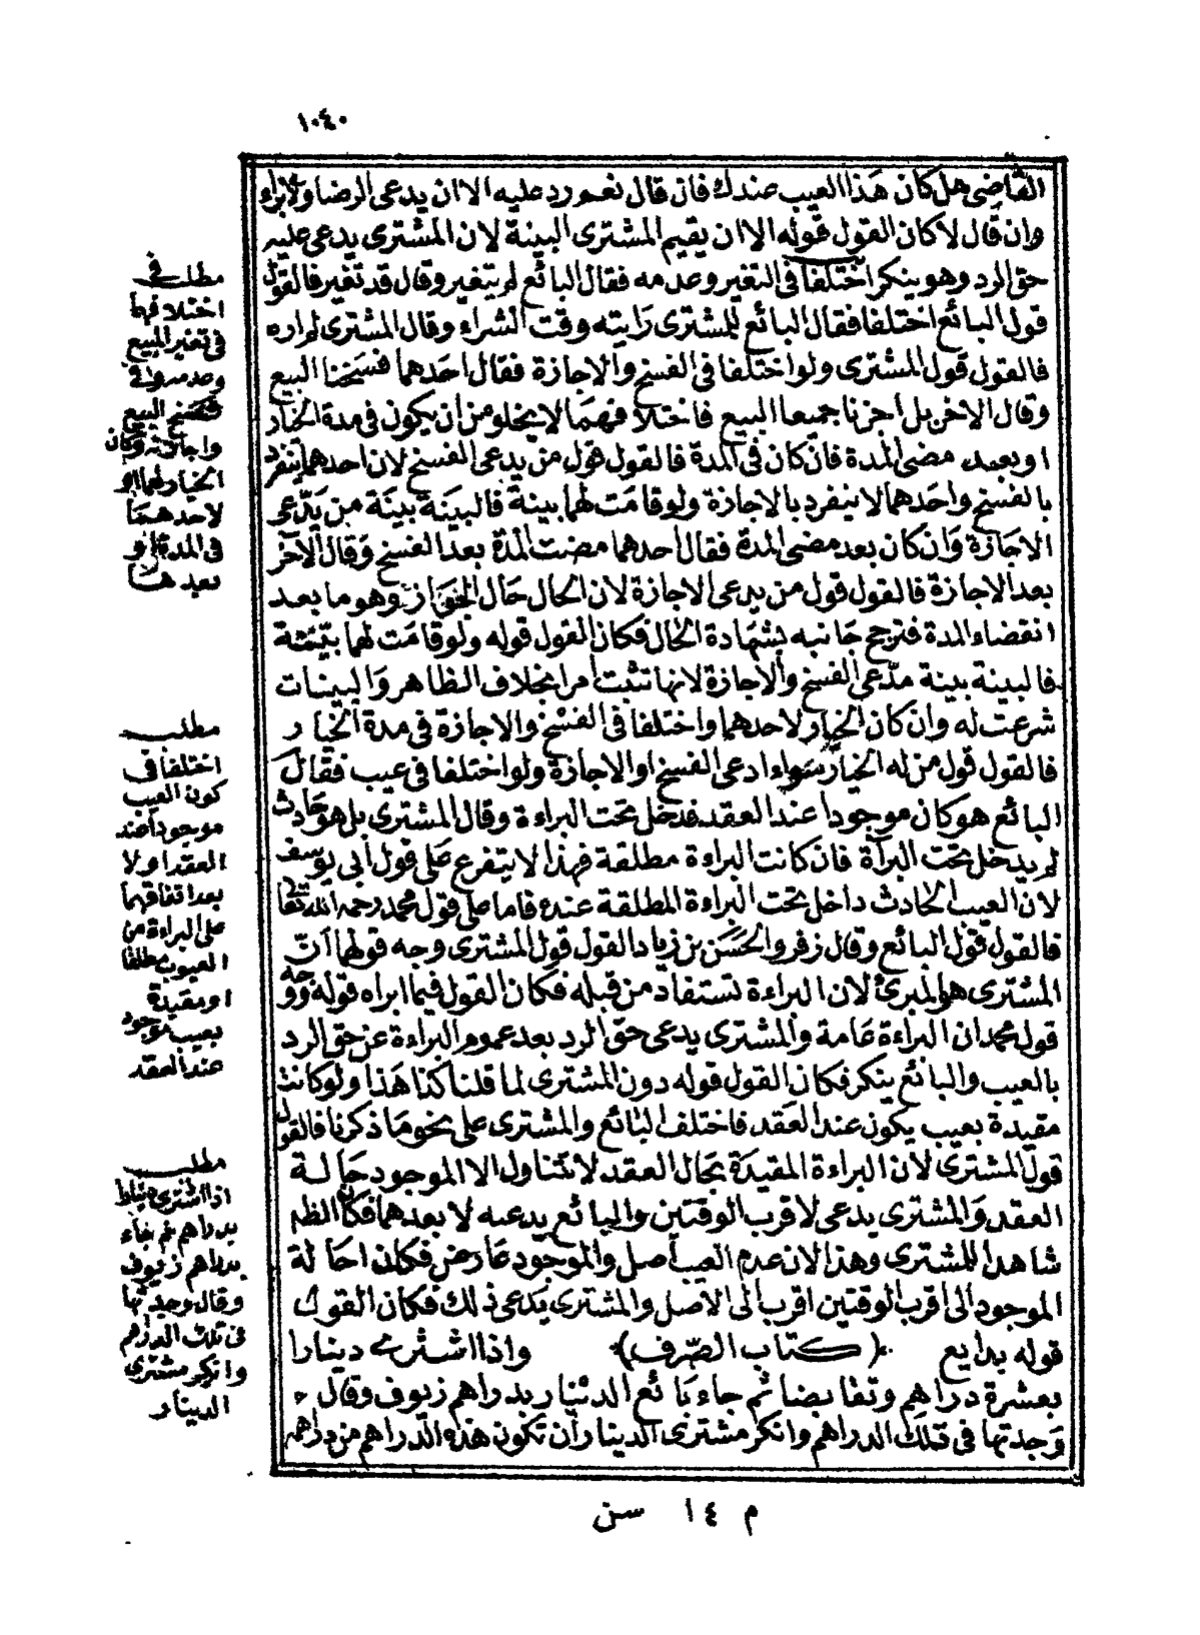 ١٠٤٠
القاضى هل كان هذا العيب عندك فان قال نعم ورد عليه الا ان يدعى الرضا والابراء
وان قال لا كان القول قوله الا ان يقيم المشترى البينة لان المشترى يدعى عليه
حق الرد وهو ينكر اختلفا فى التغير وعدمه فقال البائع لم يتغير وقال قد تغير فالقول
قول البائع اختلفا فقال البائع للمشترى رايته وقت الشراء وقال المشترى لم اره
فالقول قول المشترى ولو اختلفا فى الفسخ والاجازة فقال احدهما فسخنا البيع
وقال الاخر بل اجزنا جميعا البيع فاختلافهما لا يخلو من ان يكون فى مدة الخيار
او بعد مضى المدة فان كان فى المدة فالقول قول من يدعى الفسخ لان احدهما ينفرد
بالفسخ واحدهما لا ينفرد بالاجازة ولو قامت لهما بينة فالبينة بينة من يدعى
الاجازة وان كان بعد مضى المدة فقال احدهما مضت المدة بعد الفسخ وقال الآخر
بعد الاجازة فالقول قول من يدعى الاجازة لان الحال حال الجواز وهو ما بعد
انقضاء المدة فترجح جانبه بشهادة الحال فكان القول قوله ولو قامت لهما بينة
فالبينة بينة مدعى الفسخ والاجازة لانها تثبت امرا بخلاف الظاهر والبينات
شرعت له وان كان الخيار لاحدهما واختلفا فى الفسخ والاجازة فى مدة الخيار
فالقول قول من له الخيار سواء ادعى الفسخ او الاجازة ولو اختلفا فى عيب فقال
البائع هو كان موجودا عند العقد فدخل تحت البراءة وقال المشترى بل هو حادث
لم يدخل تحت البرآة فان كانت البراءة مطلقة فهذا لا يتفرع على قول ابى يوسف
لان العيب الحادث داخل تحت البراءة المطلقة عنده فاما على قول محمد رحمه الله تعالى
فالقول قول البائع وقال زفر والحسن بن زياد القول قول المشترى وجه قولهما ان
المشترى هو المبرئ لان البراءة تستفاد من قبله فكان القول فيما ابراه قوله ووجه
قول محمد ان البراءة عامة والمشترى يدعى حق الرد بعد عموم البراءة عن حق الرد
بالعيب والبائع ينكر فكان القول قوله دون المشترى لما قلنا كذا هذا ولو كانت
مقيدة بعيب يكون عند العقد فاختلف البائع والمشترى على نحو ما ذكرنا فالقول
قول المشترى لان البراءة المقيدة بحال العقد لا تتناول الا الموجود حالة
العقد والمشترى يدعى لاقرب الوقتين والبائع يدعيه لا بعدهما فكان الظه
شاهدا للمشترى وهذا لان عدم العيب اصل والموجود عارض فكان احالة
الموجود الى اقرب الوقتين اقرب الى الاصل والمشترى يدعى ذلك فكان القول
قوله بدايع ﴿كتاب الصرف﴾ واذا اشترى دينارا
بعشرة دراهم وتقابضا ثم جاء بائع الدينار بدراهم زيوف وقال
وجدتها فى تلك الدراهم وانكر مشترى الدينار ان تكون هذه الدراهم من دراهمه
مطلب فى
اختلافهما
فى تغير المبيع
وعدمه وفى
فسخ البيع
واجازته وكان
الخيار لهما او
لاحدهما
فى المدة او
بعدها
مطلب
اختلفا فى
كون العيب
موجودا عند
العقد اولا
بعد اتفاقهما
على البراءة من
العيوب مطلقا
او مقيدة
بعيب موجود
عند العقد
مطلب
اذا اشترى دينارا
بدراهم ثم جاء
بدراهم زيوف
وقال وجدتها
فى تلك الدراهم
وانكر مشترى
الدينار
م ١٤ سن